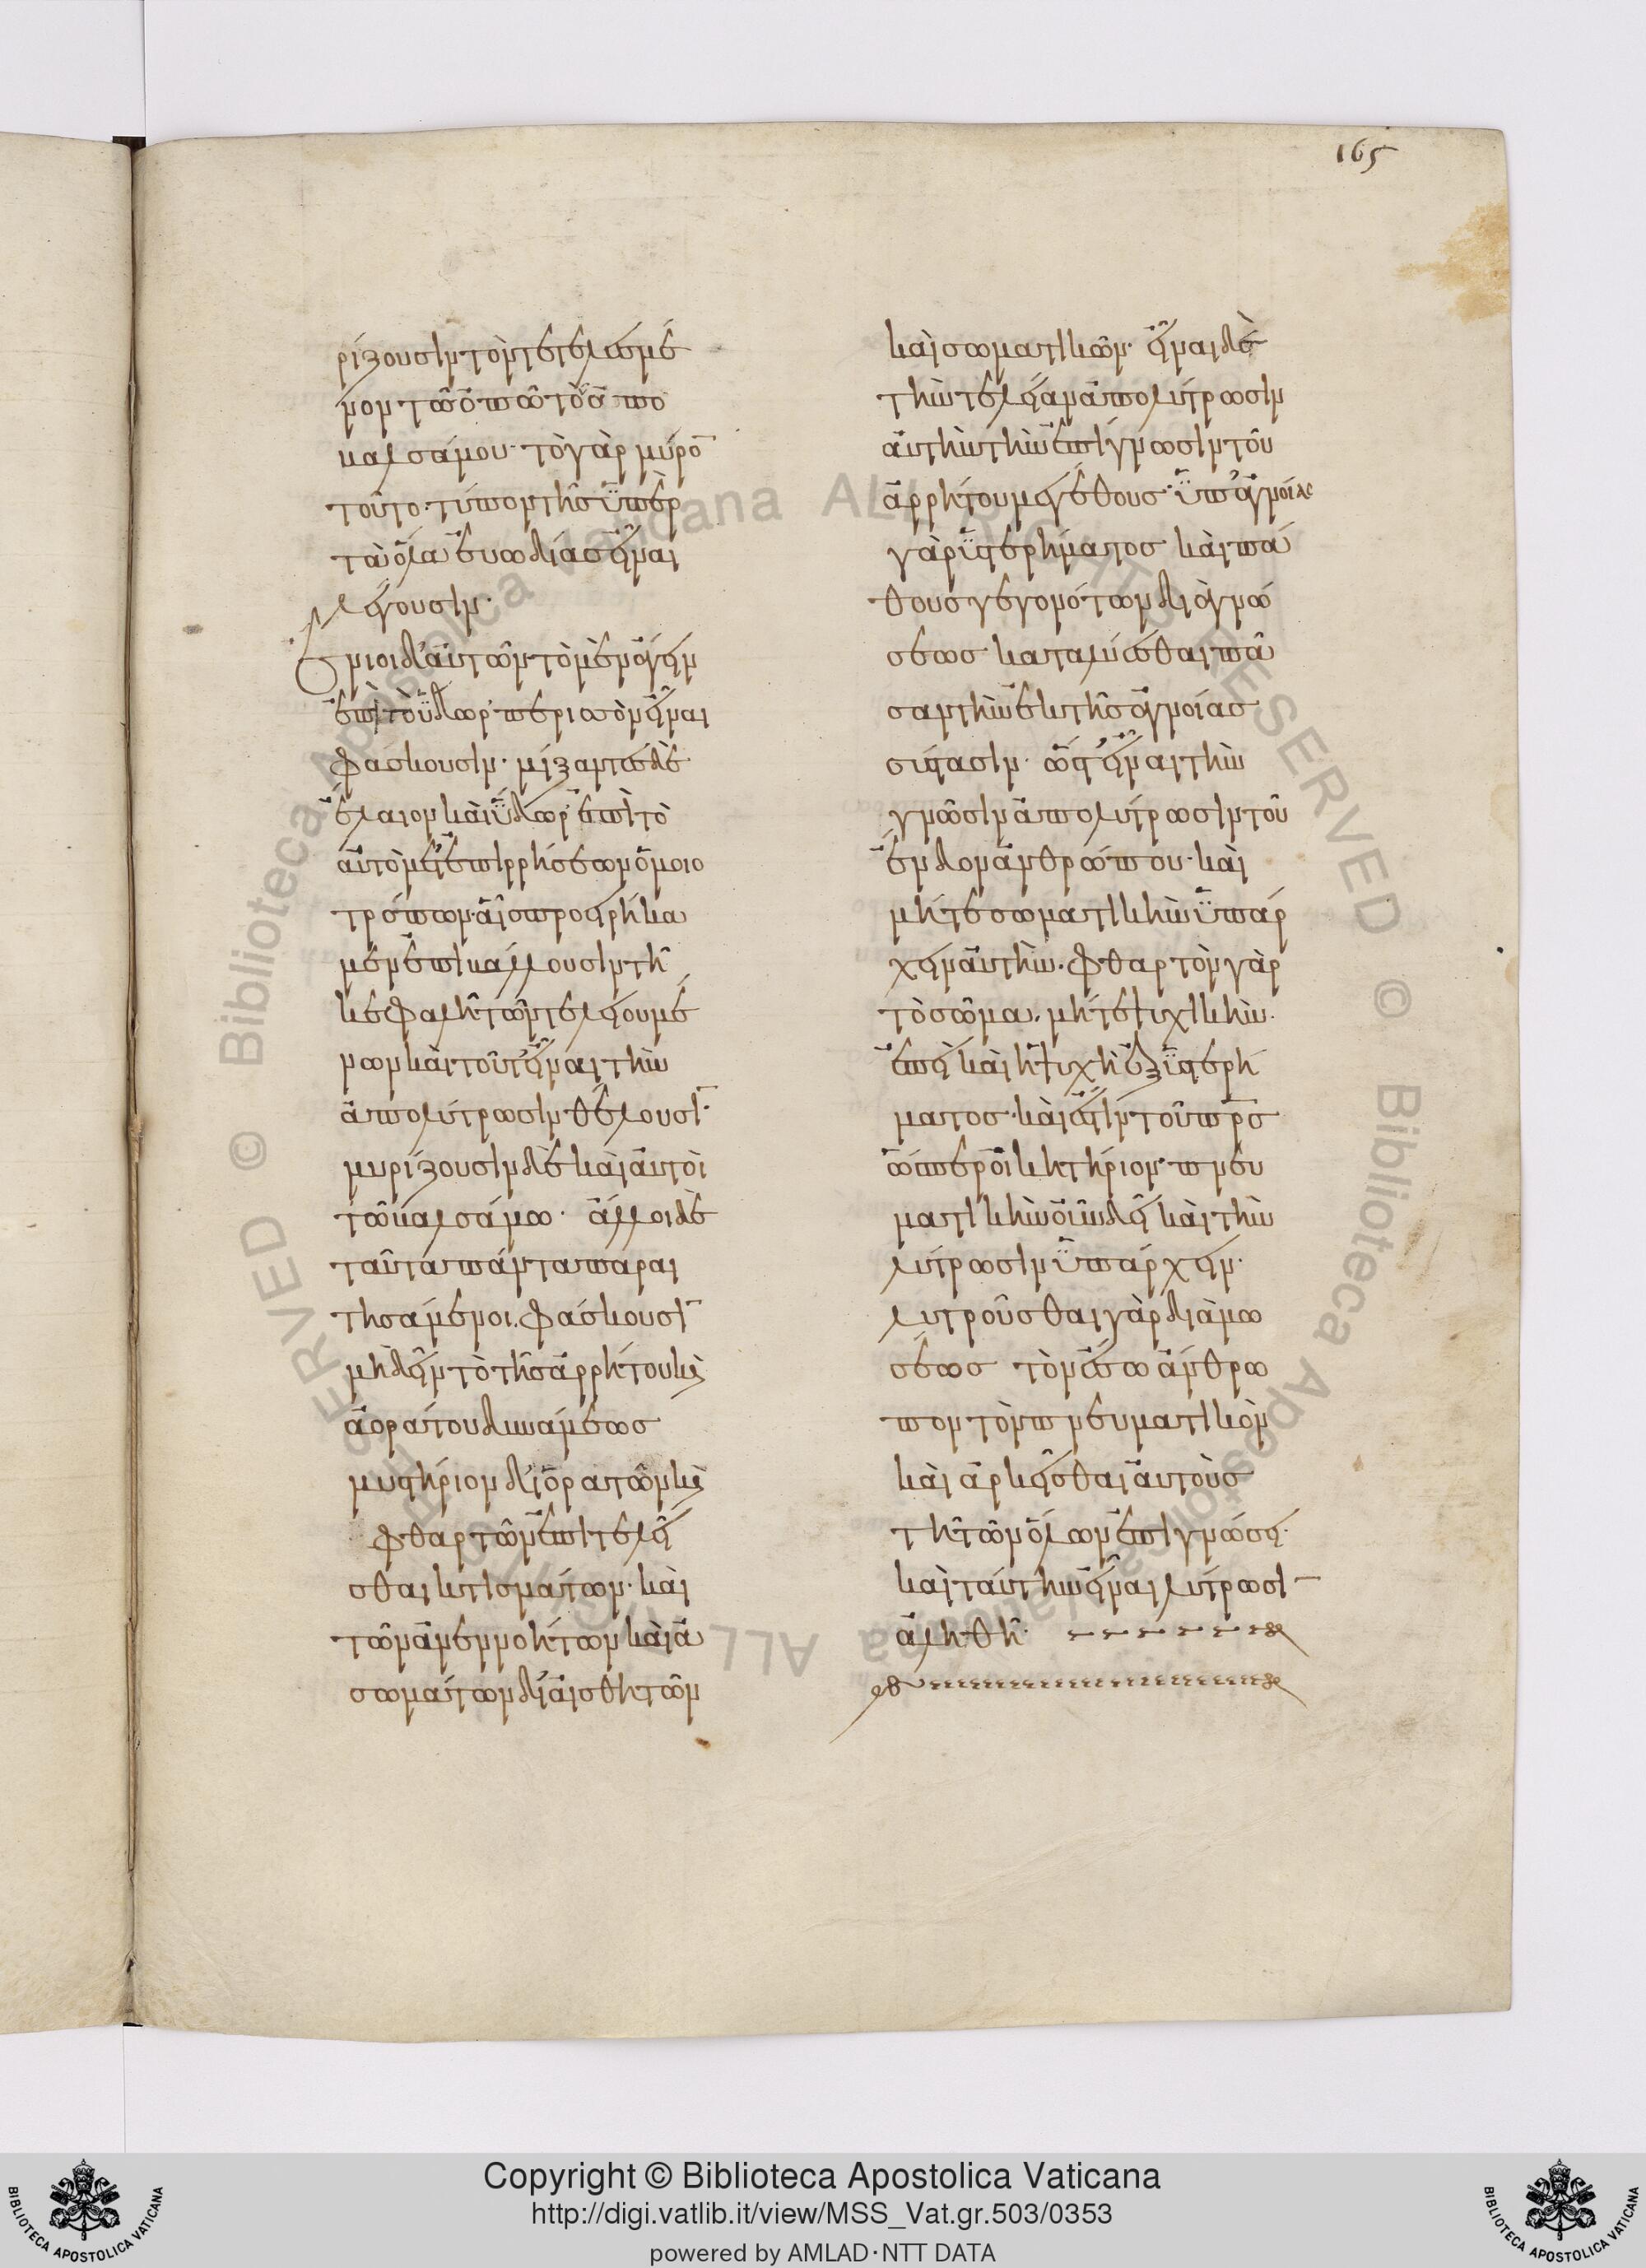 165
ρίζουσιν τὸν τετελεσμέ
νον τῶ ὀπῶ τῶ ἀπὸ
βαλσάμου· τὸ γὰρ μύρο̅
τοῦτο τύπον τῆς ὑπὲρ
τὰ ὅλα εὐωδίας εἶναι
λέγουσιν·
Ἔνιοι δ' αὐτῶν τὸ μὲν ἄγειν
ἐπὶ τὸ ὕδωρ περισσὸν εἶναι
φάσκουσιν· μίξαντες δὲ
ἔλαιον καὶ ὕδωρ ἐπὶ τὸ
αὐτὸ μετ' ἐπιρρήσεων ὁμοιο
τρόπων αἷς προειρήκα
μεν ἐπιβάλλουσιν τῆ
κεφαλῆ τῶν τελειουμέ
νων καὶ τοῦτ' εἶναι τὴν
ἀπολύτρωσιν θέλουσι̅·
μυρίζουσιν δὲ καὶ αὐτοὶ
τῶ βαλσάμω· ἄλλοι δὲ
ταῦτα πάντα παραι
τησάμενοι φάσκουσι̅
μὴ δεῖν τὸ τῆς ἀρρήτου κὲ
ἀοράτου δυνάμεως
μυστήριον δι' ὁρατῶν κὲ
φθαρτῶν ἐπιτελεῖ
σθαι κτισμάτων· καὶ
τῶν ἀνεννοήτων καὶ ἀ
σωμάτων δι' αἰσθητῶν
καὶ σωματικῶν· εἶναι δὲ
τὴν τελείαν ἀπολύτρωσιν
αὐτὴν τὴν ἐπίγνωσιν τοῦ
ἀρρήτου μεγέθους· ὑπ' ἀγνοίας
γὰρ ὑστερήματος καὶ πά
θους γεγονότων διὰ γνώ
σεως καταλύεσθαι πᾶ
σαν τὴν ἐκ τῆς ἀγνοίας
σύστασιν· ὥστ' εἶναι τὴν
γνῶσιν ἀπολύτρωσιν τοῦ
ἔνδον ἀνθρώπου· καὶ
μήτε σωματικὴν ὑπάρ
χειν αὐτὴν· φθαρτὸν γὰρ
τὸ σῶμα, μήτε ψυχικὴν·
ἐπεὶ καὶ ἡ ψυχὴ ἐξ ὑστερή
ματος καὶ ἔστιν τοῦ πν̅ς
ὥσπερ οἰκητήριον· πνευ
ματικὴν οὖν δεῖ καὶ τὴν
λύτρωσιν ὑπάρχειν·
λυτροῦσθαι γὰρ διὰ γνώ
σεως τὸν ἔσω ἄνθρω
πον τὸν πνευματικὸν
καὶ ἀρκεῖσθαι αὐτοὺς
τῆ τῶν ὅλων ἐπιγνώσει·
καὶ ταύτην εἶναι λύτρωσι̅
ἀληθῆ·
Biblioteca Apostolica Vaticana ALL RIGHTS RESERVED ©
Copyright © Biblioteca Apostolica Vaticana
http://digi.vatlib.it/view/MSS_Vat.gr.503/0353
powered by AMLAD·NTT DATA
BIBLIOTECA APOSTOLICA VATICANA
BIBLIOTECA APOSTOLICA VATICANA